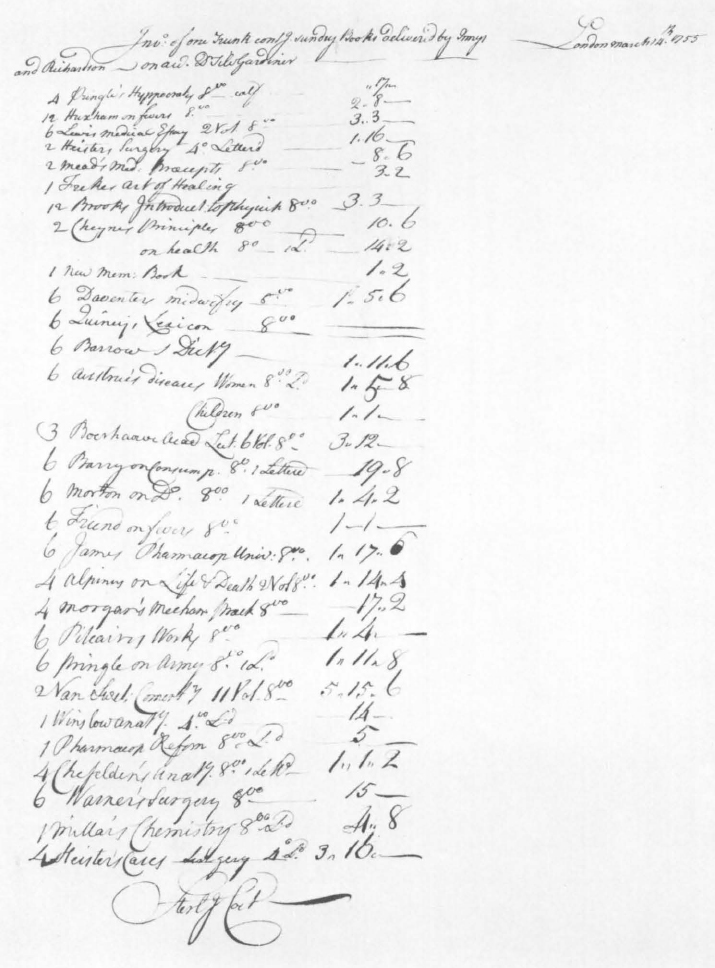 Invo. of one Trunk contg. sundry Books deliver'd by Innys London march 14th. 1755
and Richardson on acco. Dr. Silv. Gardiner
4 Pringle's Hyppocrates 8vo calf " 17 "
12 Huxham on fevers 8vo 2 " 8 —
6 Lewis medical Essay 2 Vol 8vo 3 " 3 —
2 Heisters Surgery 4o Letterd 1 " 16 —
2 Mead's Med. Præcepts 8vo — 8 " 6
1 Frekes Art of Healing 3 " 2
12 Brooks Introduct to Physick 8vo 3 " 3 —
2 Cheynes Principles 8vo 10 " 6
on health 8o — 1 Ld. 14 " 2
1 New Mem: Book 1 " 2
6 Daventers midwifry 8vo 1 " 5 " 6
6 Quincy's Lexicon 8vo
6 Barrow's Dicty 1 " 11 " 6
6 Diseases Women 8vo Ld 1 " 5 " 8
Children 8vo 1 " 1 —
3 Boerhaave Acad Lect. 6 Vol. 8vo 3 " 12 —
6 Barry on Consump. 8o. 1 Letterd 19 " 8
6 Morton on Do. 8vo 1 Letterd 1 " 4 " 2
6 Friend on fevers 8vo 1 — 1 —
6 James Pharmacop Univ: 8vo. 1 " 17 " 6
4 Alpinus on Life & Death 2 Vol 8vo. 1 " 14 " 4
4 Morgan's Mechan Pract 8vo — 17 " 2
6 Pitcairn's Works 8vo 1 " 4 " —
6 Pringle on Army 8o. 1 Ld. 1 " 11 " 8
2 Van Swet. Comenty 11 Vol. 8vo 5 " 15 " 6
1 Winslow anaty. 4to Ld 14 —
1 Pharmacop Reform 8vo Ld 5 —
4 Cheselden's Anaty. 8vo 1 Letd 1 " 1 " 2
6 Warner's Surgery 8vo 15 —
1 Millar's Chemistry 8vo Ld 4 " 8
4 Heister's Cases Surgery 4o Ld. 3 " 16 " —